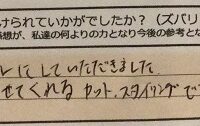 けられていかがでしたか？（ズバリ
感想が、私達の何よりの力となり今後の参考とな
レにしていただきました
せてくれる カット、スタイリングで